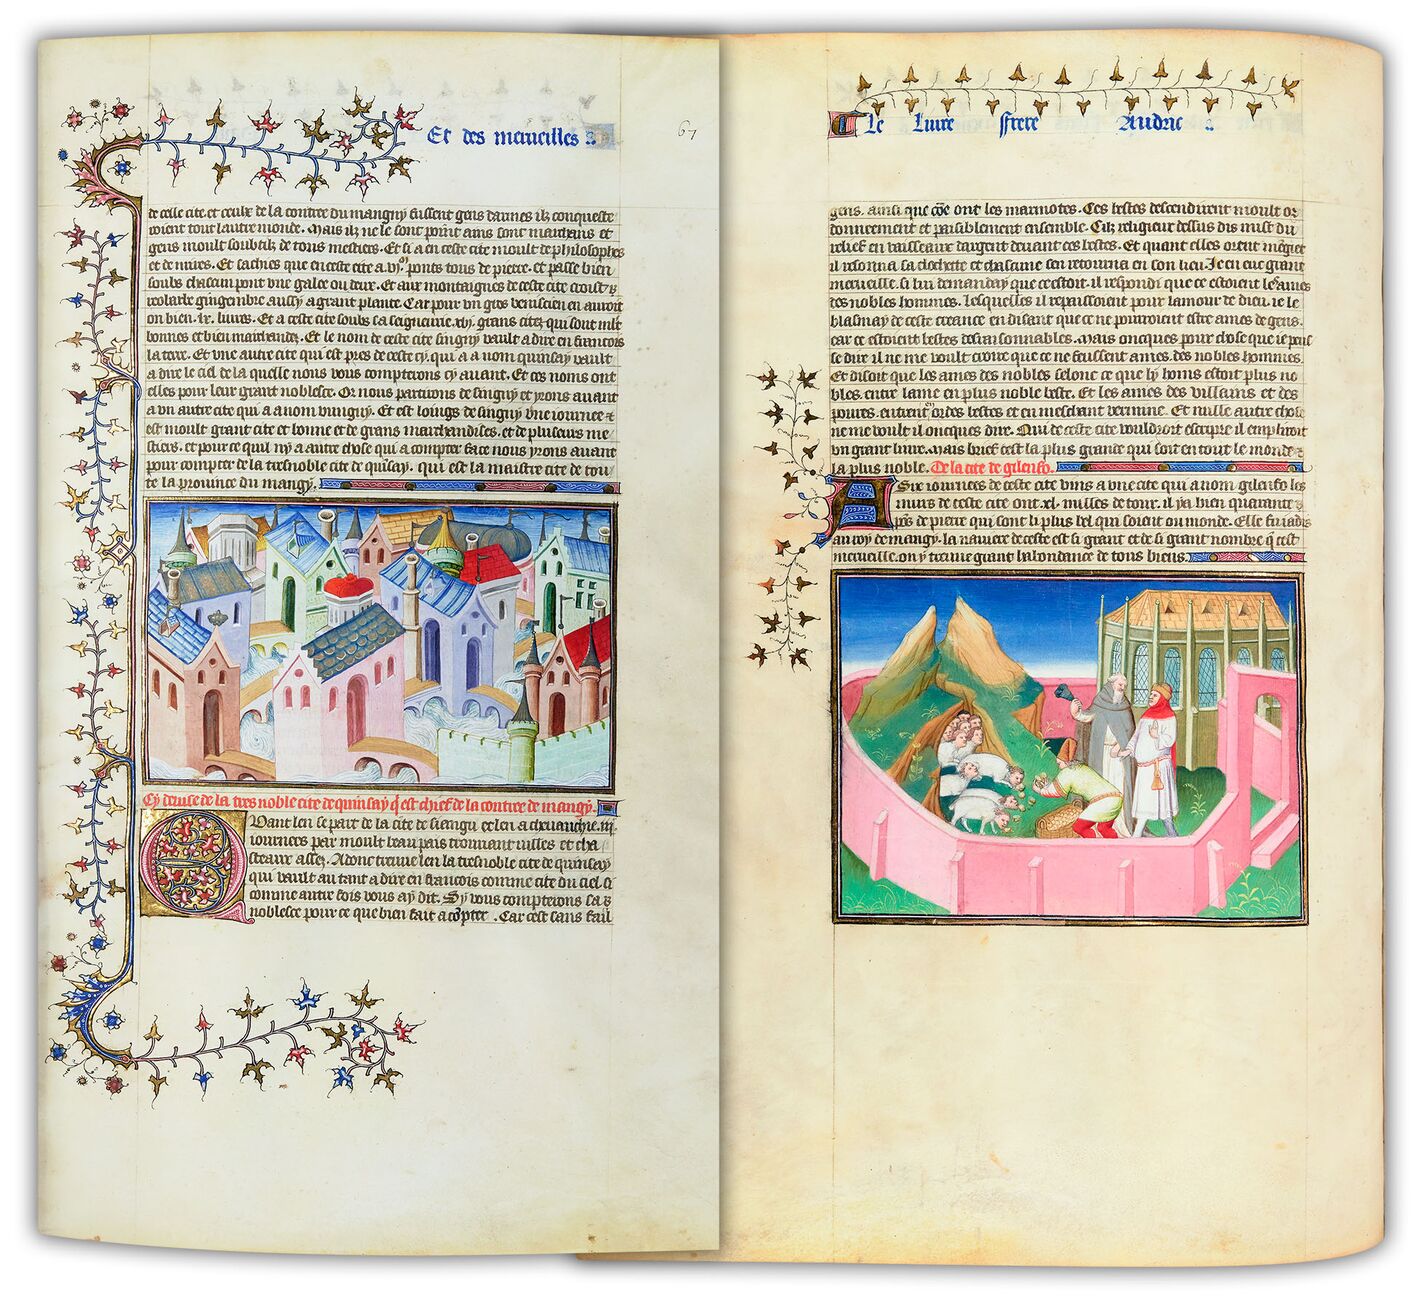 Et des merueilles
67
de celle cite. et ceulx de la contree du mangny fussent gens darmes ilz conqueste
roient tout lautre monde. Mais ilz ne le sont point ains sont marchans et
gens moult soubtilz de tous mestiers. Et si a en ceste cite moult de philosophes
et de mires. Et sachies que en ceste cite a. vj.ᵐ ponts tous de pierre. et passe bien
soubs chascun pont vne galee ou deux. Et aux montaignes de ceste cite croist
reobarbe gingembre aussy a grant plante. Car pour vn gros venicien en auroit
on bien. lx. liures. Et a ceste cite soubs sa seigneurie. xvj. grans citez qui sont mlt
bonnes et bien marchandes. Et le nom de ceste cite singuy vault a dire en francois
la terre. Et vne autre cite qui est pres de ceste cy. qui a a nom quinsay vault
a dire le ciel de la quelle nous vous compterons cy auant. Et ces noms ont
elles pour leur grant noblesce. Or nous partirons de singuy et yrons auant
a vn autre cite qui a a nom vnnguy. Et est loings de singuy vne iournee
est moult grant cite et bonne et de grans marchandises. et de plusieurs mes
stiers. et pour ce quil ny a autre chose qui a compter face nous yrons auant
pour compter de la tresnoble cite de quisay. qui est la maistre cite de tou
te la prouince du mangy.
Cy deuise de la tres noble cite de quinsay q̄ est chief de la contree de mangy.
Quant len se part de la cite de siengu et len a cheuauchie. iij.
iournees par moult beau pais trouuant villes et cha
steaux assez. Adonc treuue len la tresnoble cite de quinsay
qui vault autant a dire en francois comme cite du ciel. si
comme autre fois vous ay dit. Sy vous compterons sa
noblesce pour ce que bien fait a cōpter. Car cest sans fail
Le Liure frere Audric
gens. ainsi que cōe ont les marmotes. Ces bestes descendirent moult or
donneement et paisiblement ensemble. Cilz religieux dessus dis mist du
relief en vaisseaux dargent deuant ces bestes. Et quant elles orent mēgiet
il resonna sa clochette et chascune sen retourna en son lieu. Je en eue grant
merueille. si lui demanday que ce estoit. il respondi que ce estoient les ames
des nobles hommes. lesquelles il repaissoient pour lamour de dieu. ie le
blasmay de ceste creance en disant que ce ne pourroient estre ames de gens.
car ce estoient bestes desraisonnables. Mais oncques pour chose que ie peus
se dire il ne me voult croire que ce ne feussent ames. des nobles hommes.
Et disoit que les ames des nobles selonc ce que ly homs estoit plus no
bles. entre lame en plus noble beste. Et les ames des villains et des
poures. entrent en ordes bestes et en meschant vermine. Et nulle autre chose
ne me voult il oncques dire. Qui de ceste cite vouldroit escripre il empliroit
vn grant liure. Mais brief cest la plus grande qui soit en tout le monde
la plus noble. De la cite de gilenfo.
A six iournees de ceste cite vins a vne cite qui a nom gilenfo les
murs de ceste cite ont. xl. milles de tour. il ya bien quarante
pōs de pierre qui sont li plus bel qui soient ou monde.
au roy de mangy. la nauiere de ceste est si grant et de si grant nombre q̄ cest
merueille. on y treuue grant habondance de tous biens.